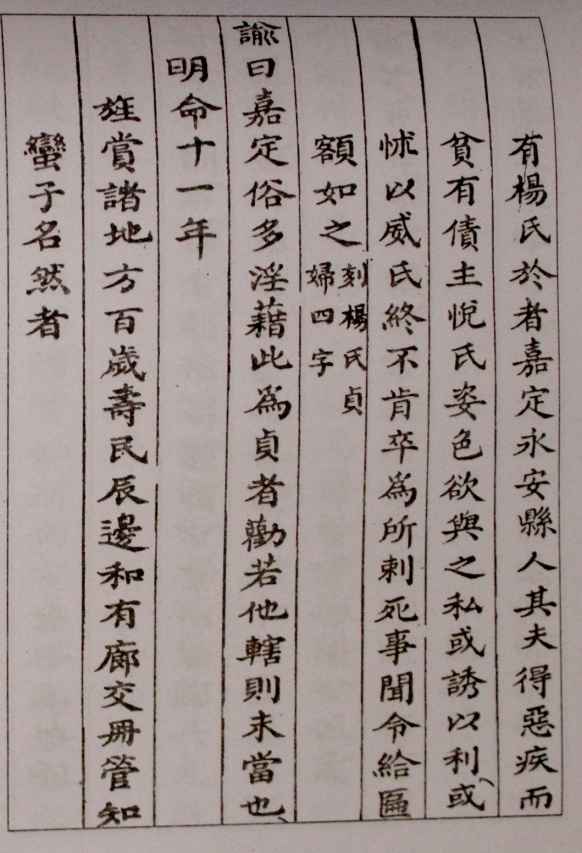 有楊氏於者嘉定永安縣人其夫得惡疾而
貧有債主悅氏姿色欲與之私或誘以利或
怵以威氏終不肯卒爲所刺死事聞令給匾
額如之刻楊氏貞婦四字
諭曰嘉定俗多淫藉此爲貞者勸若他轄則未當也
明命十一年
旌賞諸地方百歲壽民辰邊和有廊交冊管知
蠻子名然者